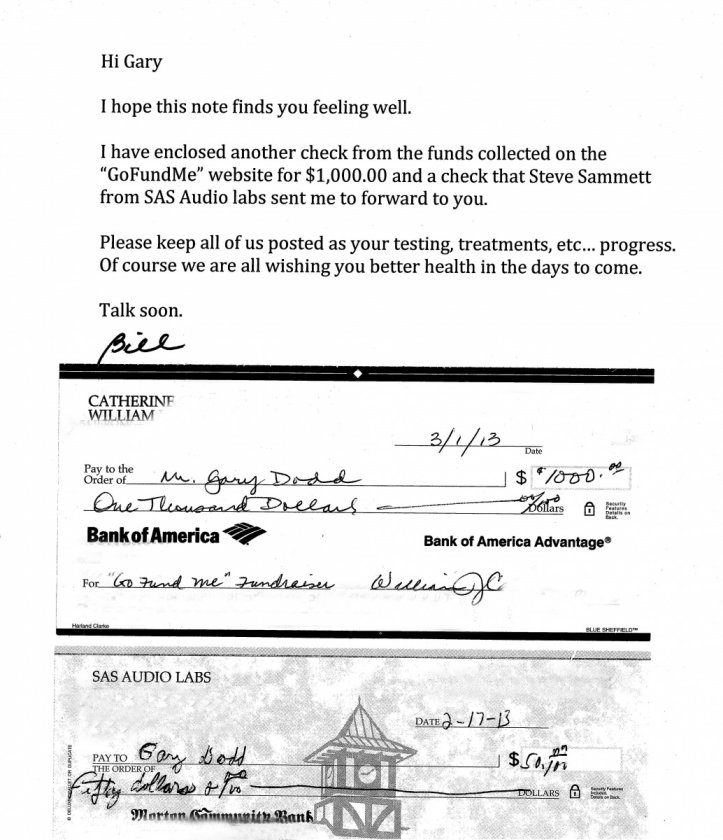 Hi Gary
I hope this note finds you feeling well.
I have enclosed another check from the funds collected on the
“GoFundMe” website for $1,000.00 and a check that Steve Sammett
from SAS Audio labs sent me to forward to you.
Please keep all of us posted as your testing, treatments, etc… progress.
Of course we are all wishing you better health in the days to come.
Talk soon.
Bill
CATHERINE
WILLIAM
3/1/13
Date
Pay to the
Order of Mr. Gary Dodd $ $1000.00
One Thousand Dollars 00/100 Dollars
Security
Features
Details on
Back.
Bank of America
Bank of America Advantage®
For "Go Fund me" Fundraiser William J C
Harland Clarke
BLUE SHEFFIELD™
SAS AUDIO LABS
DATE 2-17-13
PAY TO
THE ORDER OF Gary Dodd $50.00/100
Fifty dollars DOLLARS
Security Features
Included.
Details on Back.
Morton Community Bank